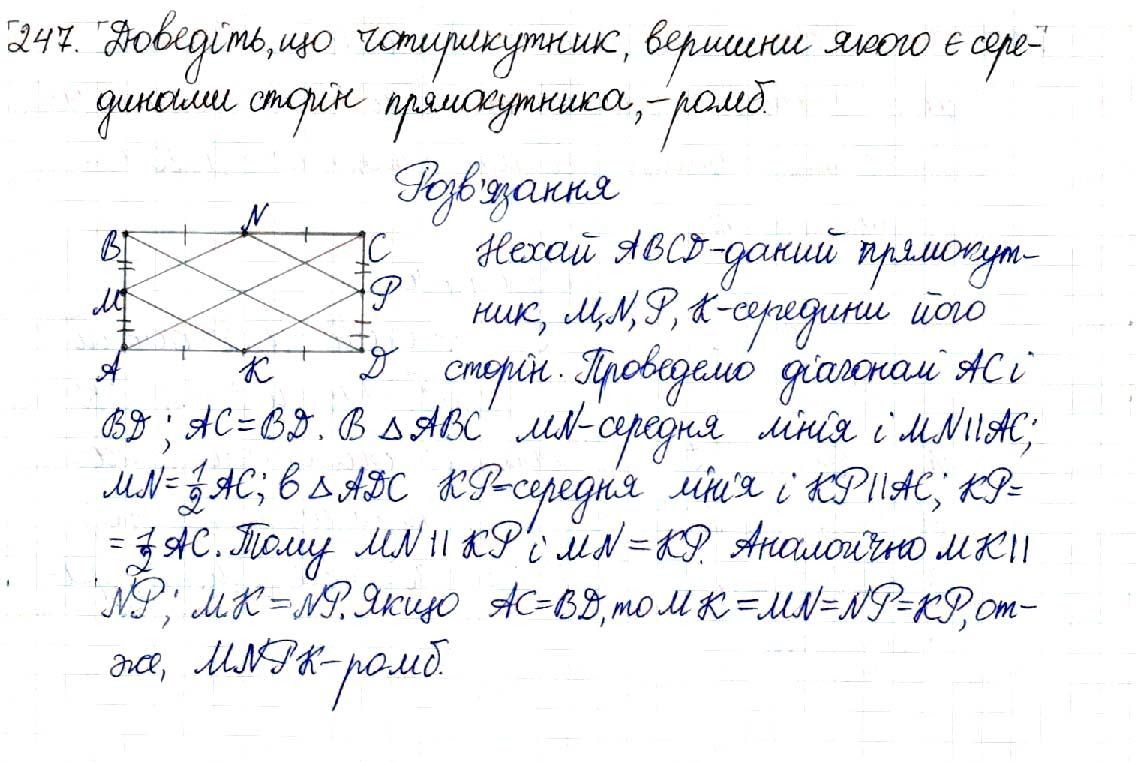 247. Доведіть, що чотирикутник, вершини якого є сере-
динами сторін прямокутника, – ромб.
Розв'язання
N
B
C
M
P
A
K
D
Нехай ABCD – даний прямокут-
ник, M, N, P, K – середини його
сторін. Проведемо діагоналі AC і
BD; AC = BD. В △ABC MN – середня лінія і MN || AC;
MN = 1/2 AC; в △ADC KP – середня лінія і KP || AC; KP =
= 1/2 AC. Тому MN || KP і MN = KP. Аналогічно MK ||
NP; MK = NP. Якщо AC = BD, то MK = MN = NP = KP, от-
же, MNPK – ромб.